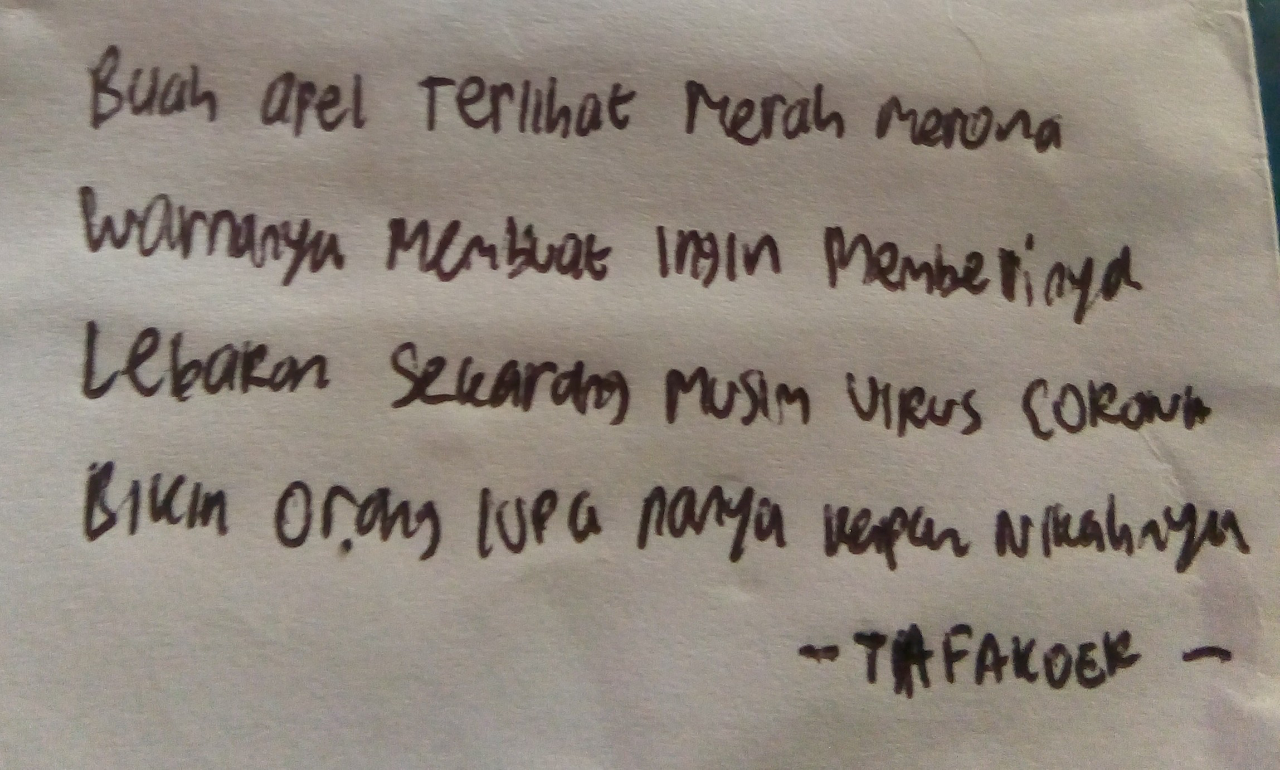 Buah apel Terlihat Merah merona
Warnanya Membuat Ingin Memberinya
Lebaran Sekarang Musim Virus Corona
Bikin Orang lupa nanya kapan Nikahnya
- TAFAKOER -